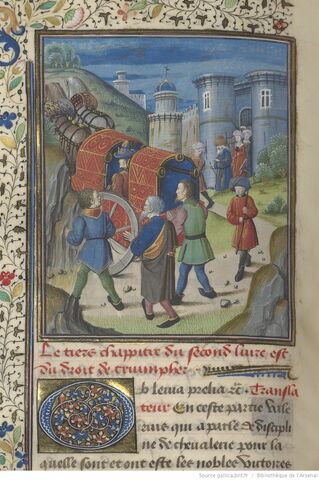 Le tiers chapitre du second liure est
du droit de triumphe
blemia prelia &c. Transla
teur En ceste partie vale
rius qui a parle de discipli
ne de cheualerie pour la
quelle sont et ont este les nobles victores
Source gallica.bnf.fr / Bibliothèque de l'Arsenal